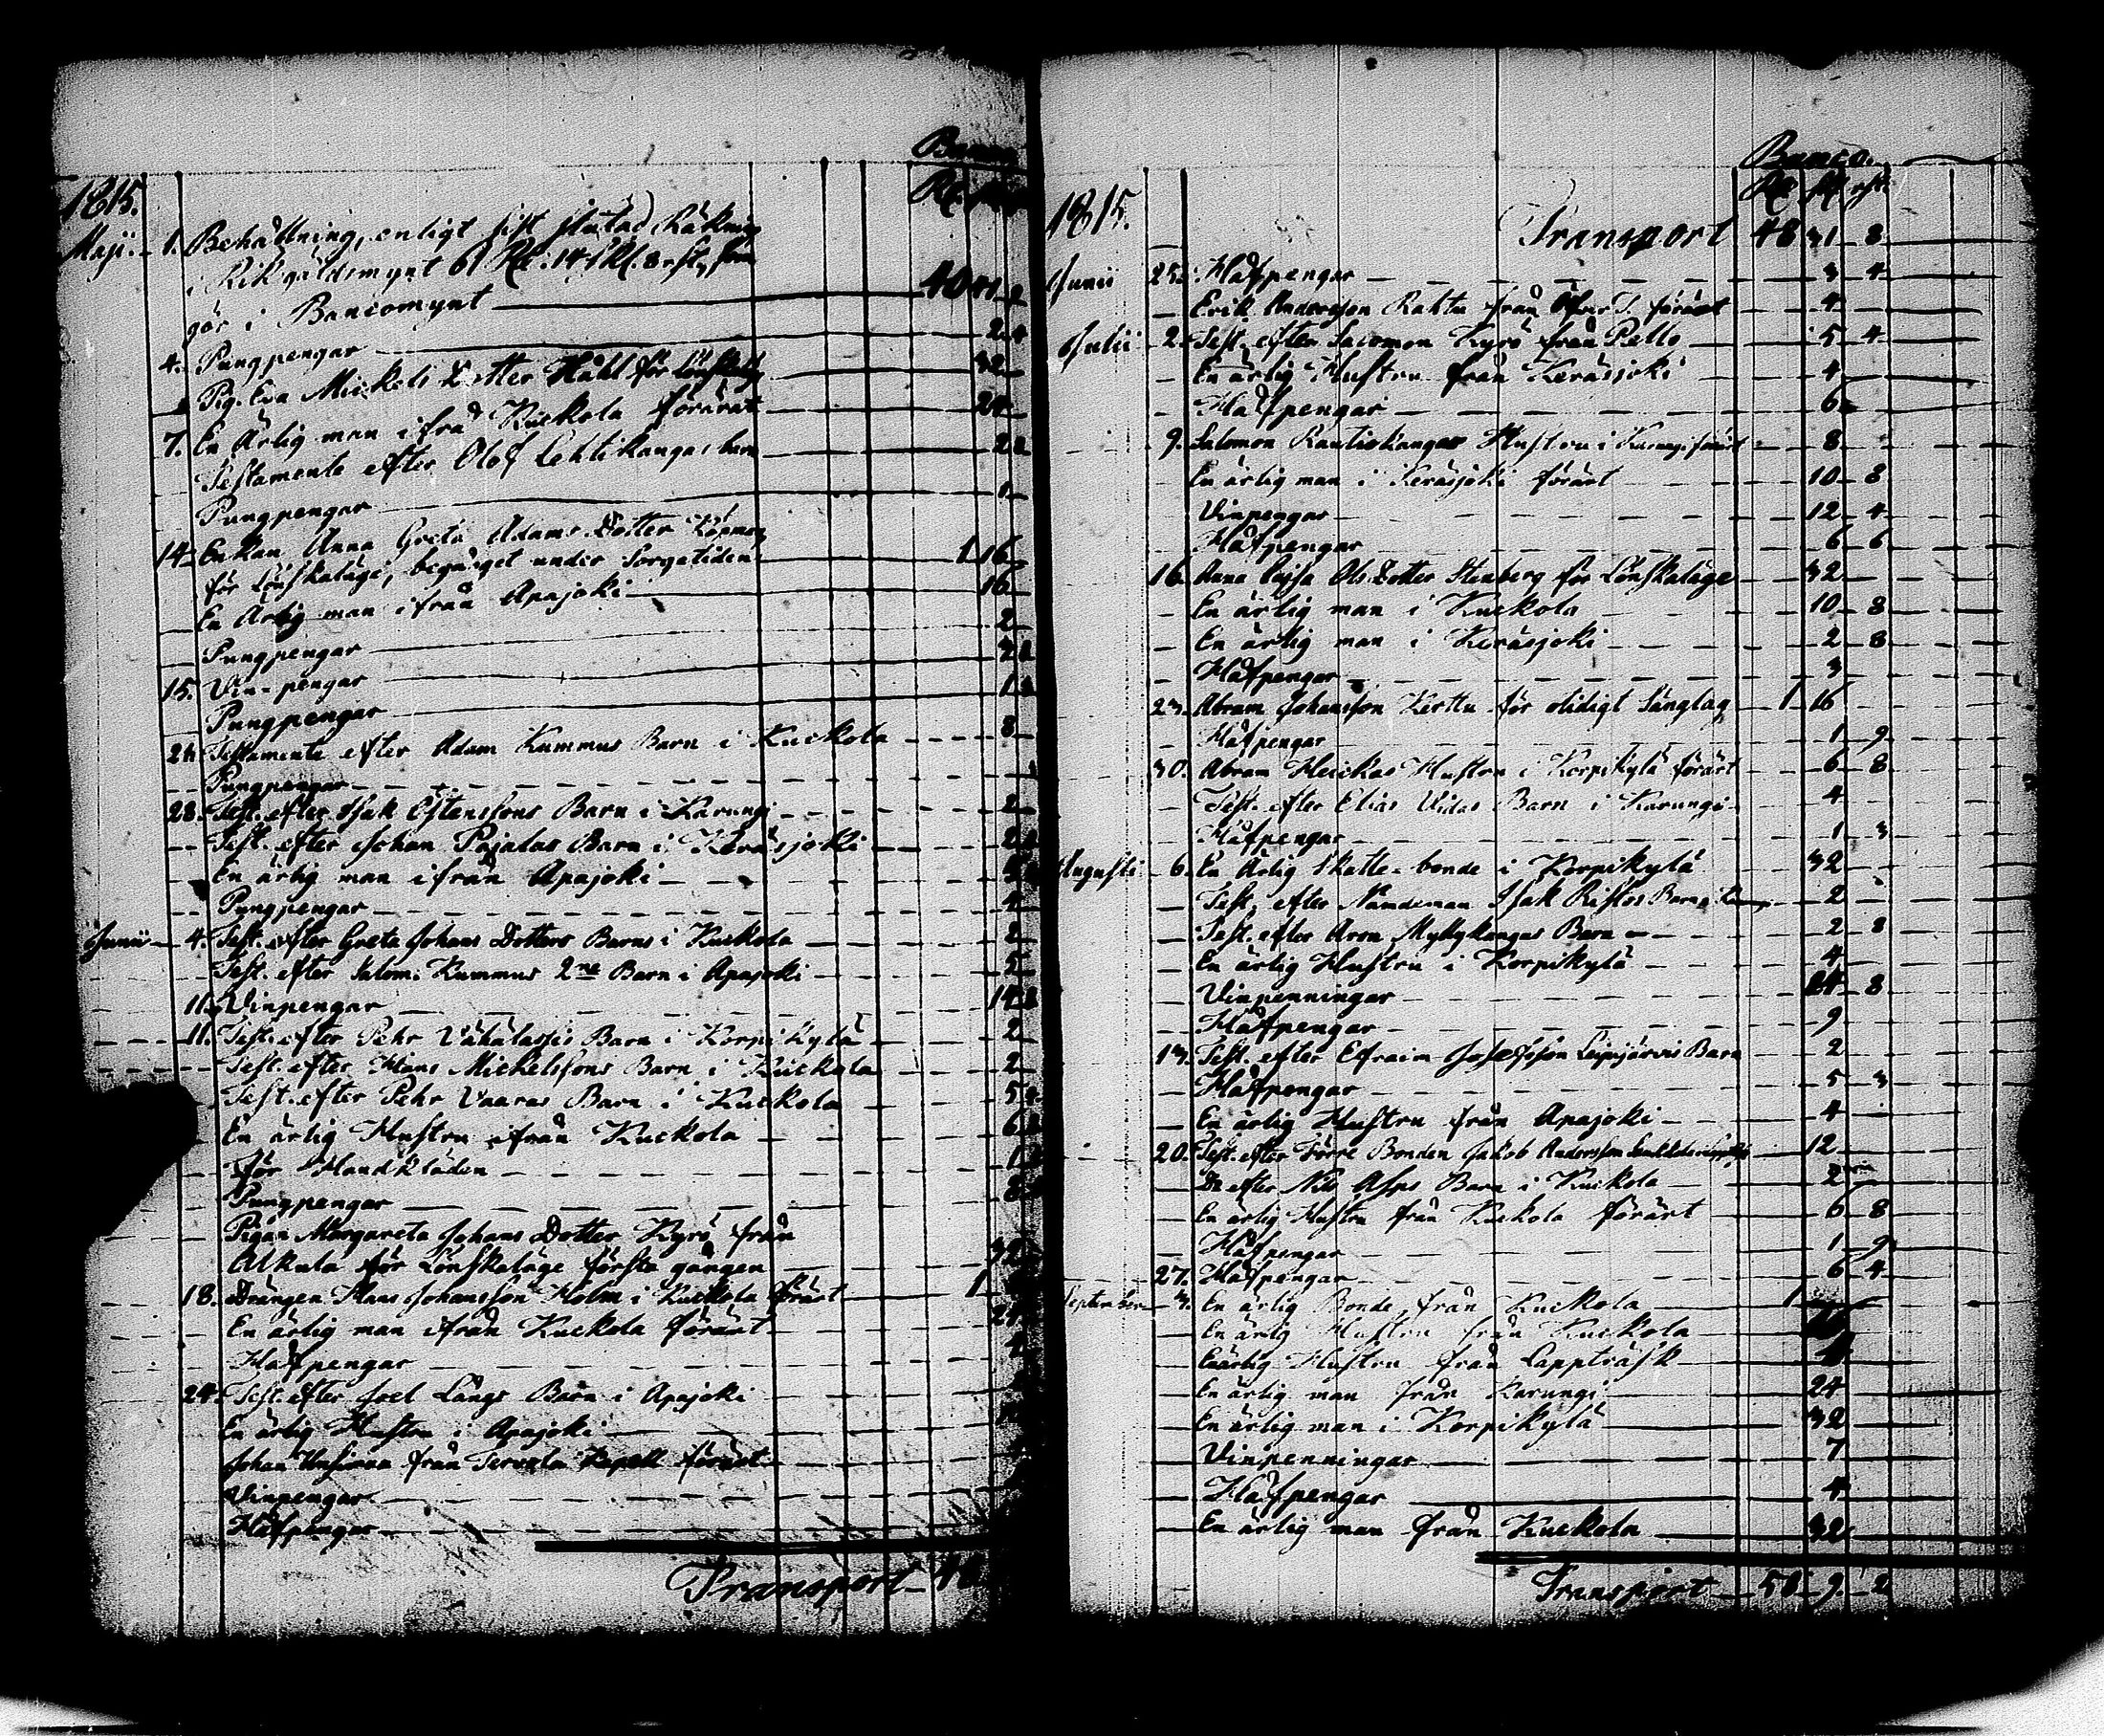 Banco
Rd. sk.
1815.
Maji. 1. Behållning, enligt sist slutad Räkning
i Riksgäldsmynt 61 Rd. 14 skl. 8 rst, som
gör i Bancomynt 40
4. Pungpengar 2 4
Pig. Eva Mickels Dotter Håhl för Lönskaläge 32
7. En Ärlig man ifrån Kuckola förärat 24
Testamente efter Olof Lehtikangas barn 2
Pungpengar 1
14. Enkan Anna Greta Adams Dotter
för Lönskaläge, begånget under Sorgetiden 1 16
En Ärlig man ifrån Apajoki 16
Pungpengar 2
15. Vin-pengar
Pungpengar 1
24. Testamente efter Adam Kummus Barn i Kuckola 8
Pungpengar
28. Test. efter Isak Östenssons Barn i Karungi 2
Test. efter Johan Pajalas Barn i Keräsjoki 2
En ärlig man ifrån Apajoki
Pungpengar
Junii 4. Test. efter Greta Johans Dotters Barns i Kuckola 2
Test. efter Salom. Kummus 2ne Barn i Apajoki 5
11. Vinpengar 14
11. Test. efter Pehr Vähälassis Barn i Korpikylä 2
Test. efter Hans Michelssons Barn i Kuckola 2
Test. efter Pehr Vaaras Barn i Kuckola 5
En ärlig Hustru ifrån Kuckola 6
för Handkläden 1
Pungpengar 8
Pigan Margareta Johans Dotter Kyrö från
Alkula för Lönskaläge första gången 32
18. Drängen Hans Johansson Holm i Kuckola förärt 1
En ärlig man ifrån Kuckola förärt
Håfpengar
24. Test. efter Joel Långs Barn i Apajoki
En ärlig Hustru i Apajoki
Johan från Tervola Kapell förärt
Vinpengar
Håfpengar
Transport 48
Banco.
Rd sk rst.
1815.
Transport 48 31 8
Junii 25. Håfpengar 3 4
Erik Andersson Rahtu från Öfver T. förärt 4
Julii 2. Test. efter Salomon Kyrö från Pello 5 4
En ärlig Hustru från Keräsjoki 4
Håfpengar 6
9. Salomon Rautiokangas Hustru i Karungi förärt 8
En ärlig man i Keräsjoki förärt 10 8
Vinpengar 12 4
Håfpengar 6 6
16. Anna Cajsa Ols Dotter Stenberg för Lönskaläge 32
En ärlig man i Kuckola 10 8
En ärlig man i Keräsjoki 2 8
Håfpengar 3
23. Abram Johansson Kerttu för otidigt Sänglag 1 16
Håfpengar 1 9
30. Abram Heickas Hustru i Korpikylä förärt 6 8
Test. efter Elias Vidas Barn i Karungi 4
Håfpengar 1 3
Augusti 6. En Ärlig Skatte-bonde i Korpikylä 32
Test. efter Nämdeman Isak Ristos Barn 2
Test. efter Aron Myllykangas Barn 2 8
En ärlig Hustru i Korpikylä 4
Vinpenningar 24 8
Håfpengar 9
13. Test. efter Efraim Josefsson Leipijärvis Barn 2
Håfpengar 5 3
En ärlig Hustru från Apajoki 4
20. Test. efter Förre Bonden Jakob Andersson 12
Do efter Nils Asps Barn i Kuckola 2
En ärlig Hustru från Kuckola förärt 6 8
Håfpengar 1 9
27. Håfpengar 6 4
September 3. En ärlig Bonde från Kuckola 1
En ärlig Hustru från Kuckola
En ärlig Hustru från Lappträsk
En ärlig man från Karungi 24
En ärlig man i Korpikylä 32
Vinpenningar 7
Håfpengar 4
En ärlig man från Kuckola 32
Transport 58 9 2